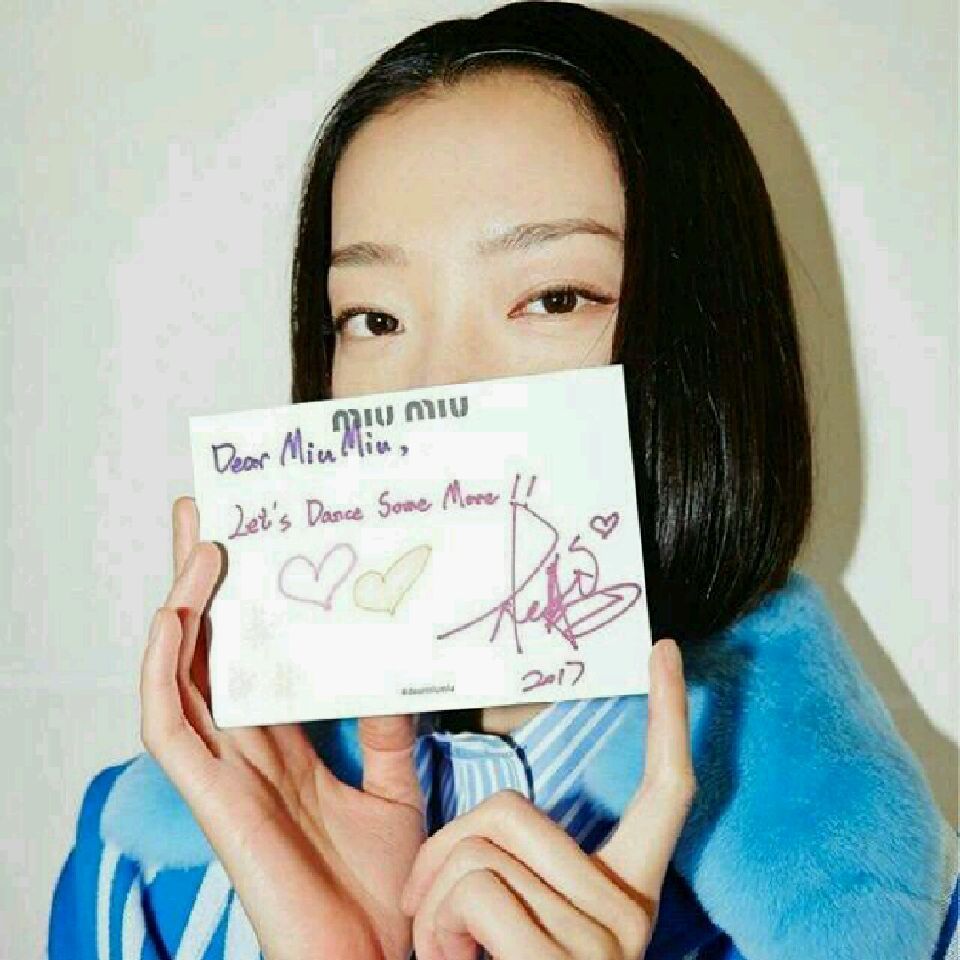 MIU MIU
Dear Miu Miu,
Let's Dance Some More!!
2017